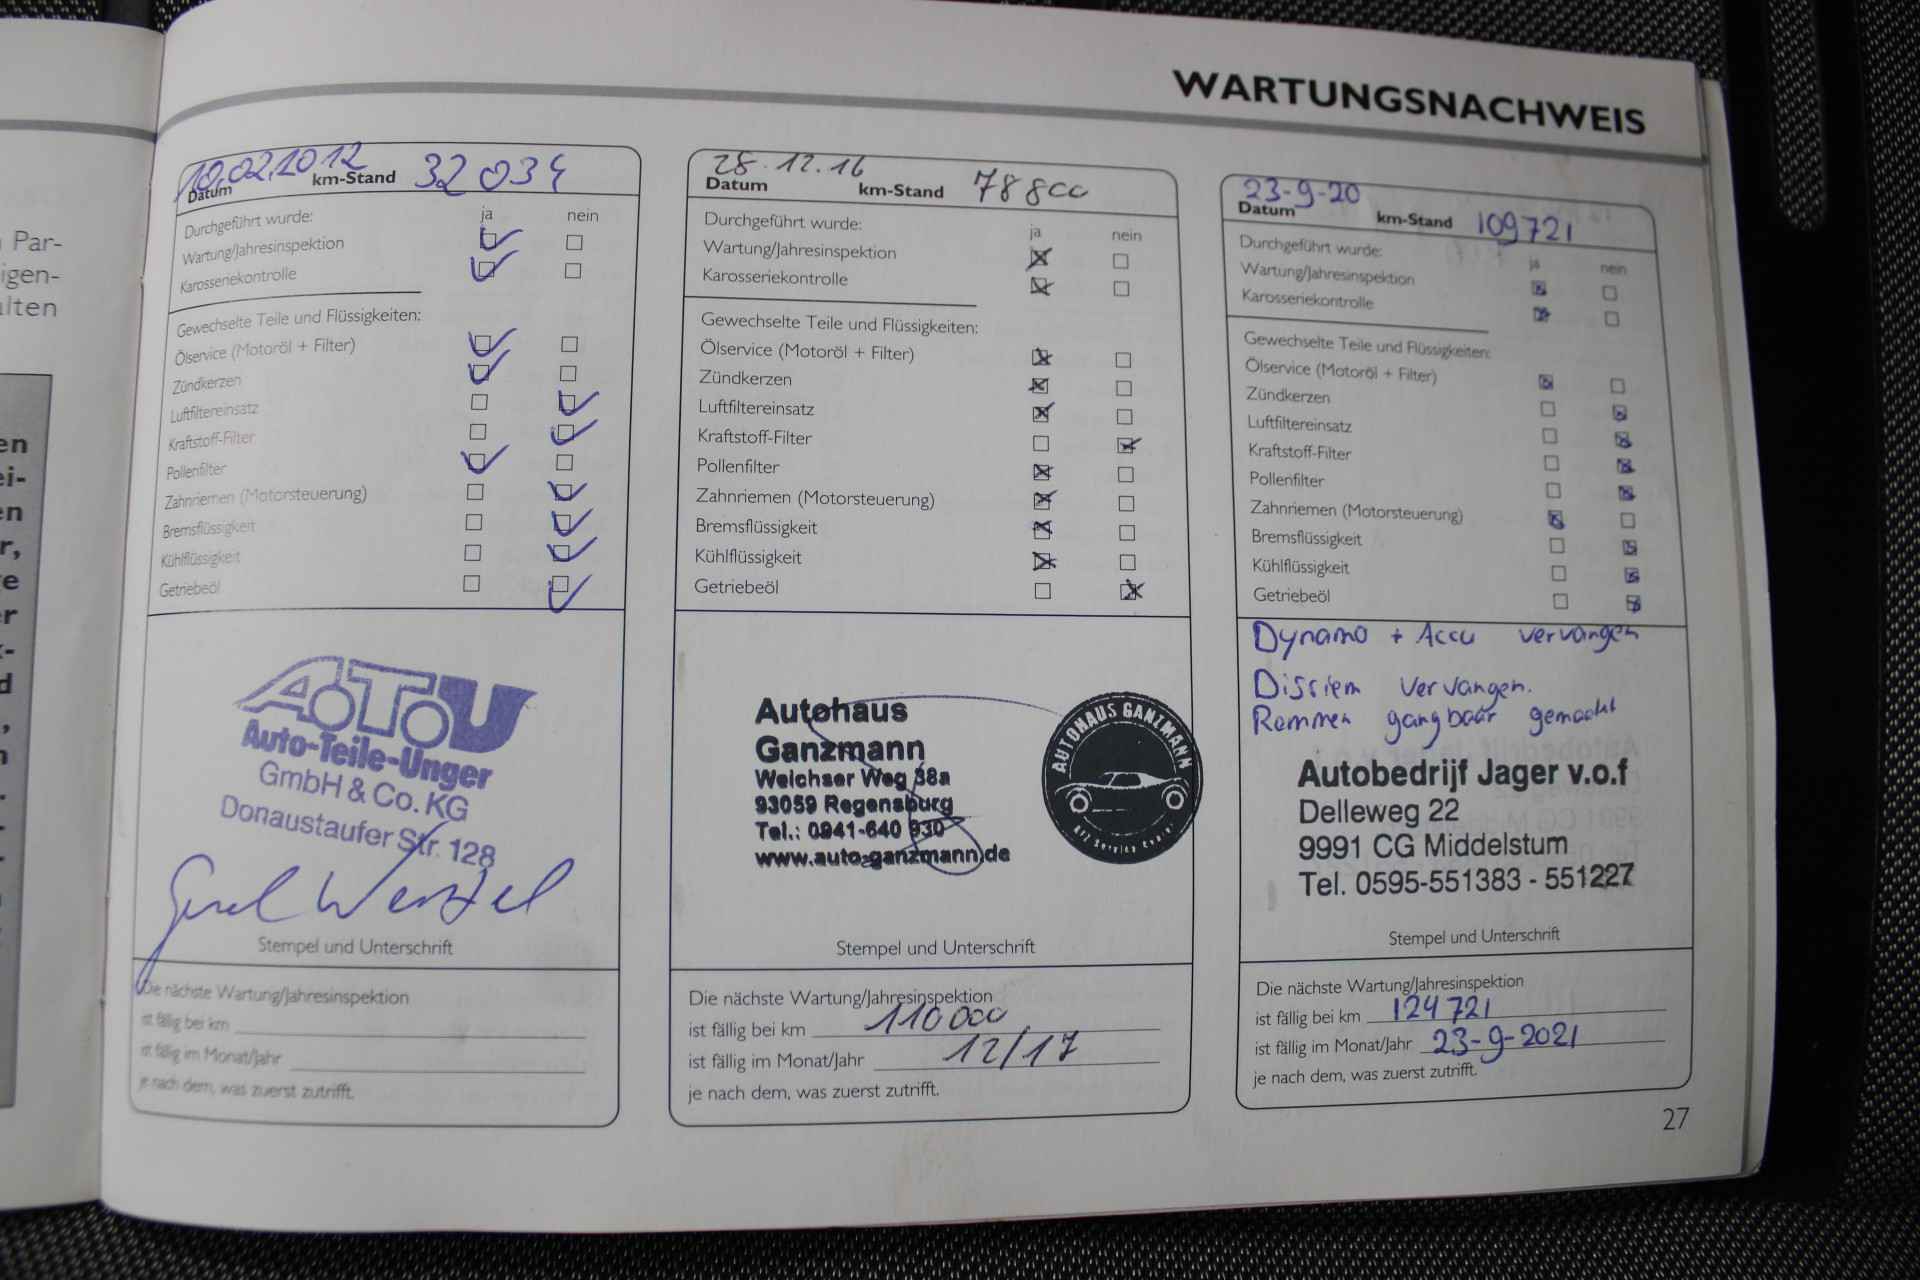 WARTUNGSNACHWEIS
Par-
igen-
alten
10.02.2012
Datum
km-Stand 32034
Durchgeführt wurde: ja nein
Wartung/Jahresinspektion
Karosseriekontrolle
Gewechselte Teile und Flüssigkeiten:
Ölservice (Motoröl + Filter)
Zündkerzen
Luftfiltereinsatz
Kraftstoff-Filter
Pollenfilter
Zahnriemen (Motorsteuerung)
Bremsflüssigkeit
Kühlflüssigkeit
Getriebeöl
ATU
Auto-Teile-Unger
GmbH & Co. KG
Donaustaufer Str. 128
Stempel und Unterschrift
Die nächste Wartung/Jahresinspektion
ist fällig bei km
ist fällig im Monat/Jahr
je nach dem, was zuerst zutrifft.
28.12.16
Datum
km-Stand 78800
Durchgeführt wurde: ja nein
Wartung/Jahresinspektion
Karosseriekontrolle
Gewechselte Teile und Flüssigkeiten:
Ölservice (Motoröl + Filter)
Zündkerzen
Luftfiltereinsatz
Kraftstoff-Filter
Pollenfilter
Zahnriemen (Motorsteuerung)
Bremsflüssigkeit
Kühlflüssigkeit
Getriebeöl
Autohaus
Ganzmann
Weichser Weg 38a
93059 Regensburg
Tel.: 0941-640 930
www.auto-ganzmann.de
AUTOHAUS GANZMANN
KFZ Service Center
Stempel und Unterschrift
Die nächste Wartung/Jahresinspektion
ist fällig bei km 110000
ist fällig im Monat/Jahr 12/17
je nach dem, was zuerst zutrifft.
23-9-20
Datum
km-Stand 109721
Durchgeführt wurde: ja nein
Wartung/Jahresinspektion
Karosseriekontrolle
Gewechselte Teile und Flüssigkeiten:
Ölservice (Motoröl + Filter)
Zündkerzen
Luftfiltereinsatz
Kraftstoff-Filter
Pollenfilter
Zahnriemen (Motorsteuerung)
Bremsflüssigkeit
Kühlflüssigkeit
Getriebeöl
Dynamo + Accu vervangen
Disriem vervangen.
Remmen gangbaar gemaakt
Autobedrijf Jager v.o.f
Delleweg 22
9991 CG Middelstum
Tel. 0595-551383 - 551227
Stempel und Unterschrift
Die nächste Wartung/Jahresinspektion
ist fällig bei km 124721
ist fällig im Monat/Jahr 23-9-2021
je nach dem, was zuerst zutrifft.
27